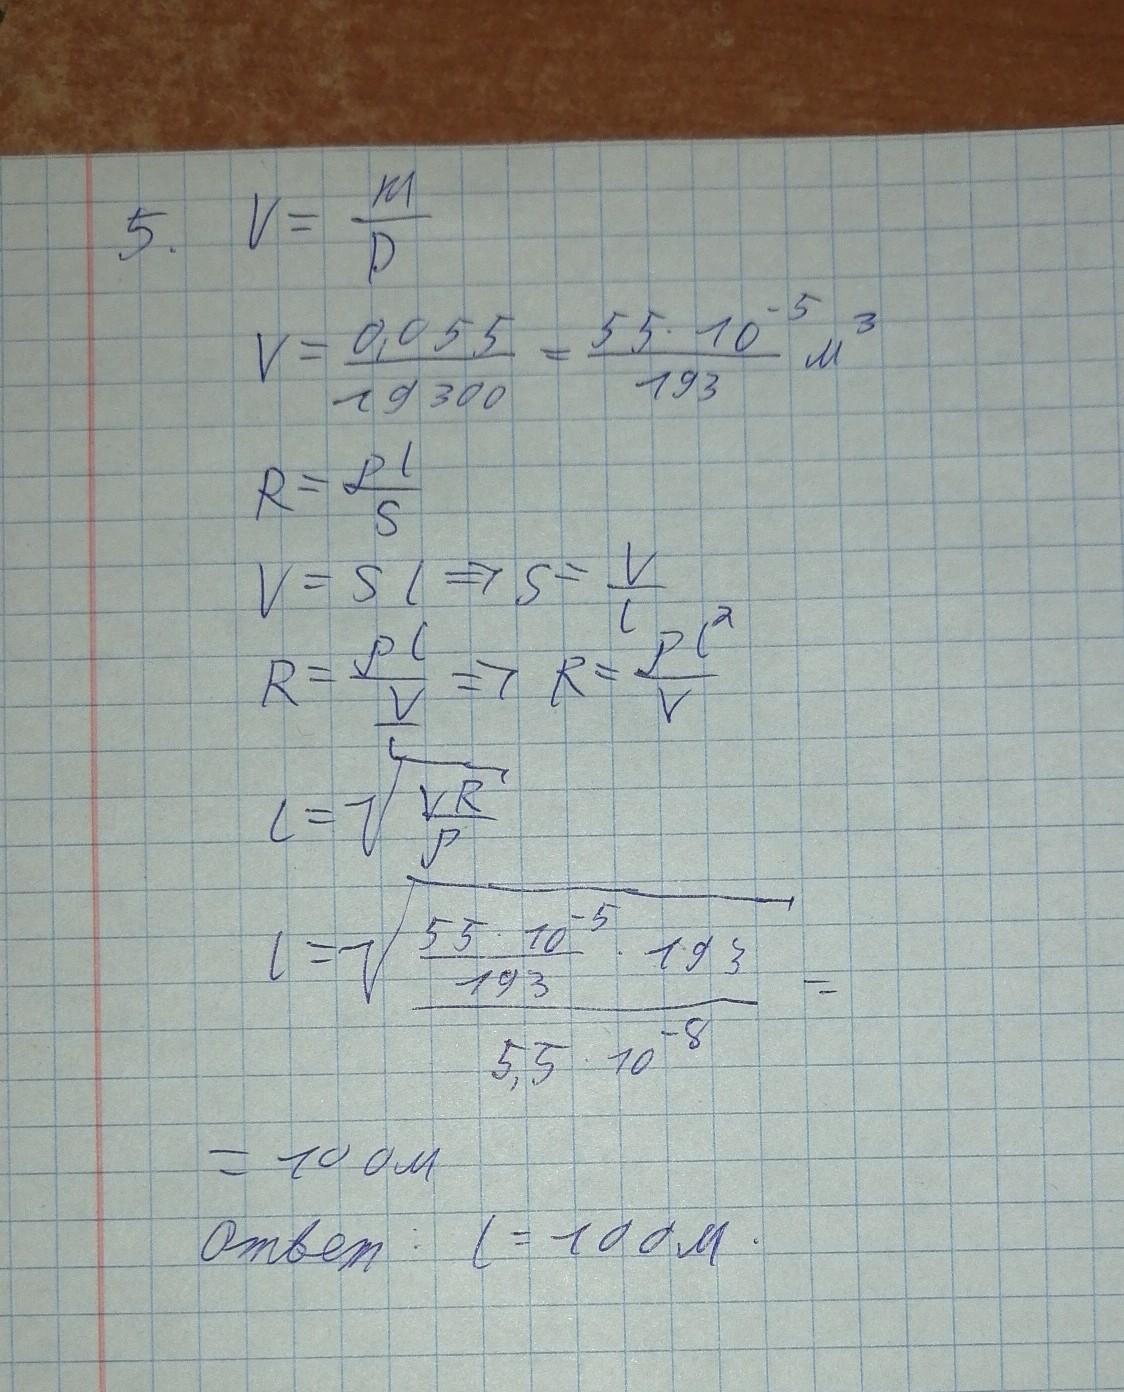 5. V = m/D
V = 0,055/19300 = 55·10⁻⁵/193 м³
R = ρl/S
V = Sl => S = V/l
R = ρl/(V/l) => R = ρl²/V
l = √(VR/ρ)
l = √((55·10⁻⁵/193 · 193)/(5,5·10⁻⁸)) =
= 100м
Ответ: l = 100м.